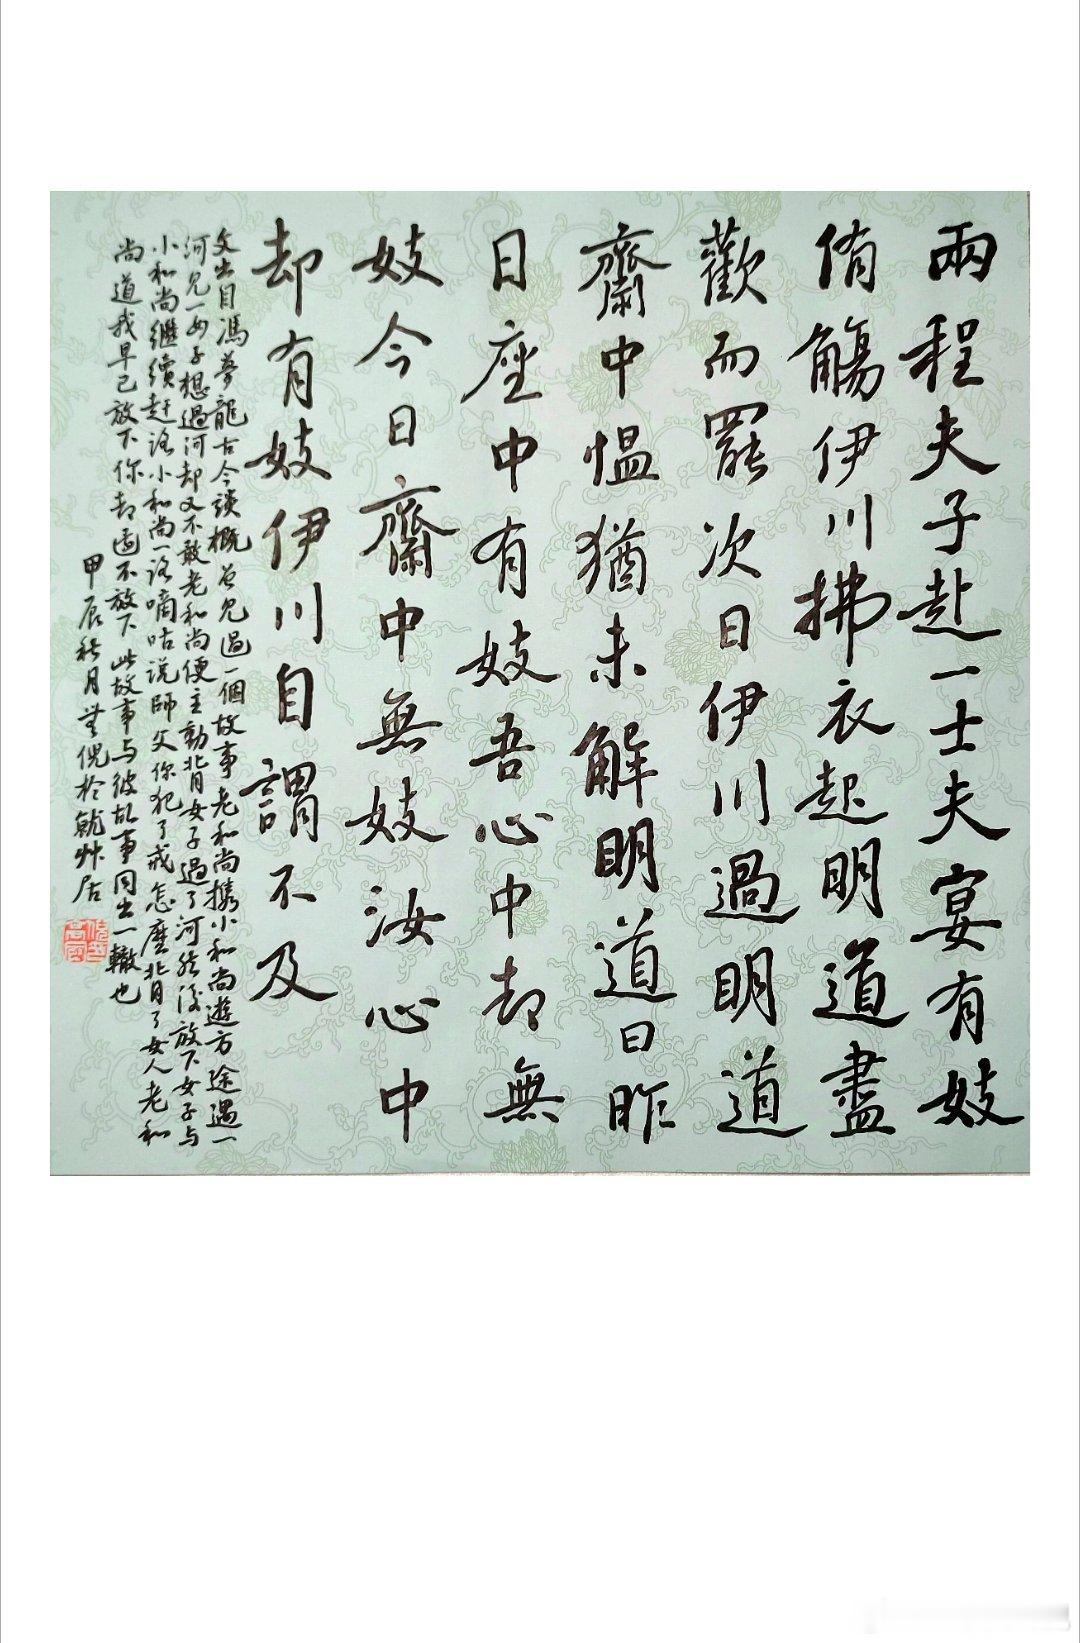 兩程夫子赴一士夫宴有妓
侑觴伊川拂衣起明道盡
歡而罷次日伊川過明道
齋中慍猶未解明道曰昨
日座中有妓吾心中却無
妓今日齋中無妓汝心中
却有妓伊川自謂不及
文出自馮夢龍古今談概曾見過一個故事老和尚攜小和尚遊方途遇一
河見一女子想過河却又不敢老和尚便主動背女子過了河然後放下女子与
小和尚繼續赶路小和尚一路嘀咕说師父你犯了戒怎麼背了女人老和
尚道我早已放下你却還不放下此故事与彼故事同出一轍也
甲辰秋月 倪於 艸居